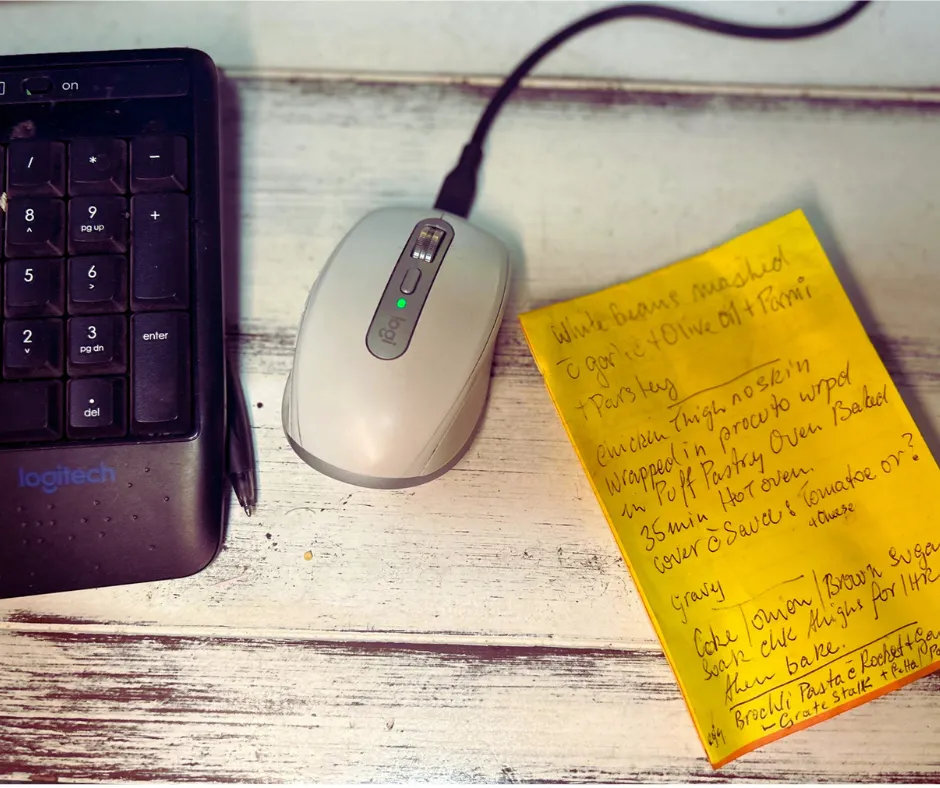 on
/ * -
8 9 pg up +
5 6
2 3 pg dn enter
del
logitech
logi
White beans mashed
c̄ garlic + Olive oil + Parmi
+ Parsley
Chicken Thigh no skin
wrapped in procuto wrpd
in Puff Pastry Oven Baked
35 min Hot oven.
cover c̄ Sauce Tomatoe or?
+ Cheese
Gravy
Coke / onion / Brown Sugar
Soak chk thighs for 1 HR
then bake.
Brockli Pasta c̄ Rocket +
- Grate Stalk +